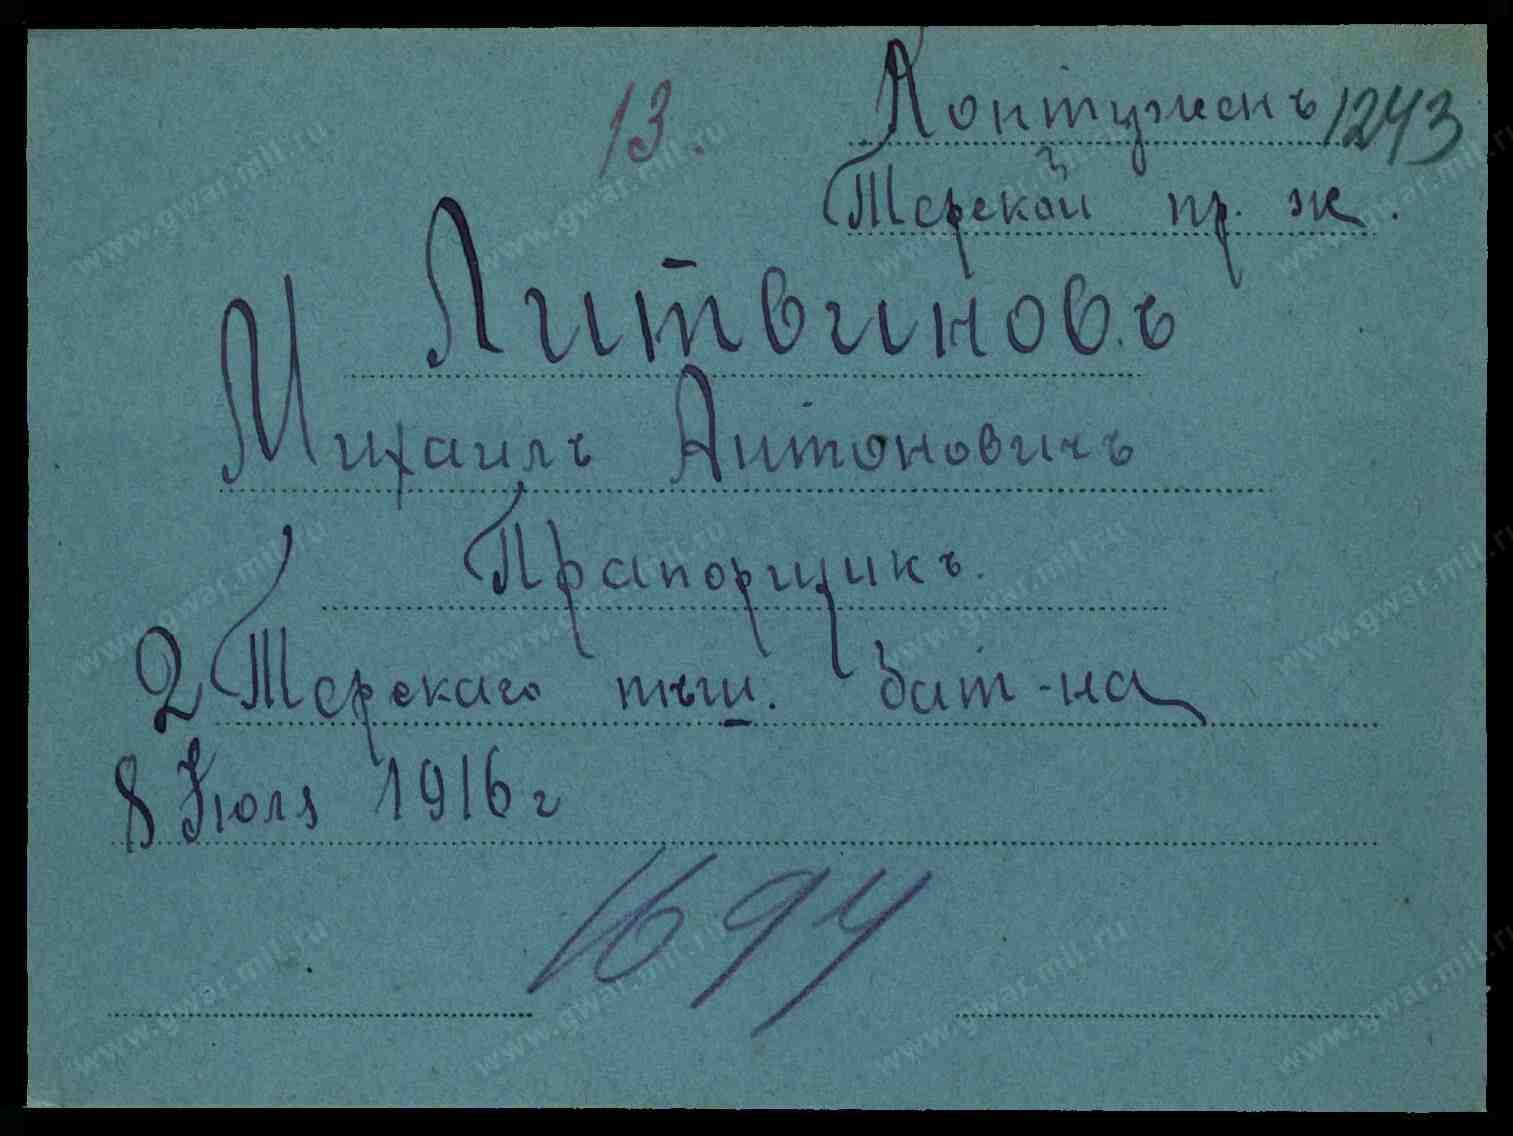 13.
Контуженъ 1243
Терской пр. ж.
Литвиновъ
Михаилъ Антоновичъ
Прапорщикъ.
2 Терскаго пѣш. бат-на
8 Іюля 1916 г
1694
www.gwar.mil.ru